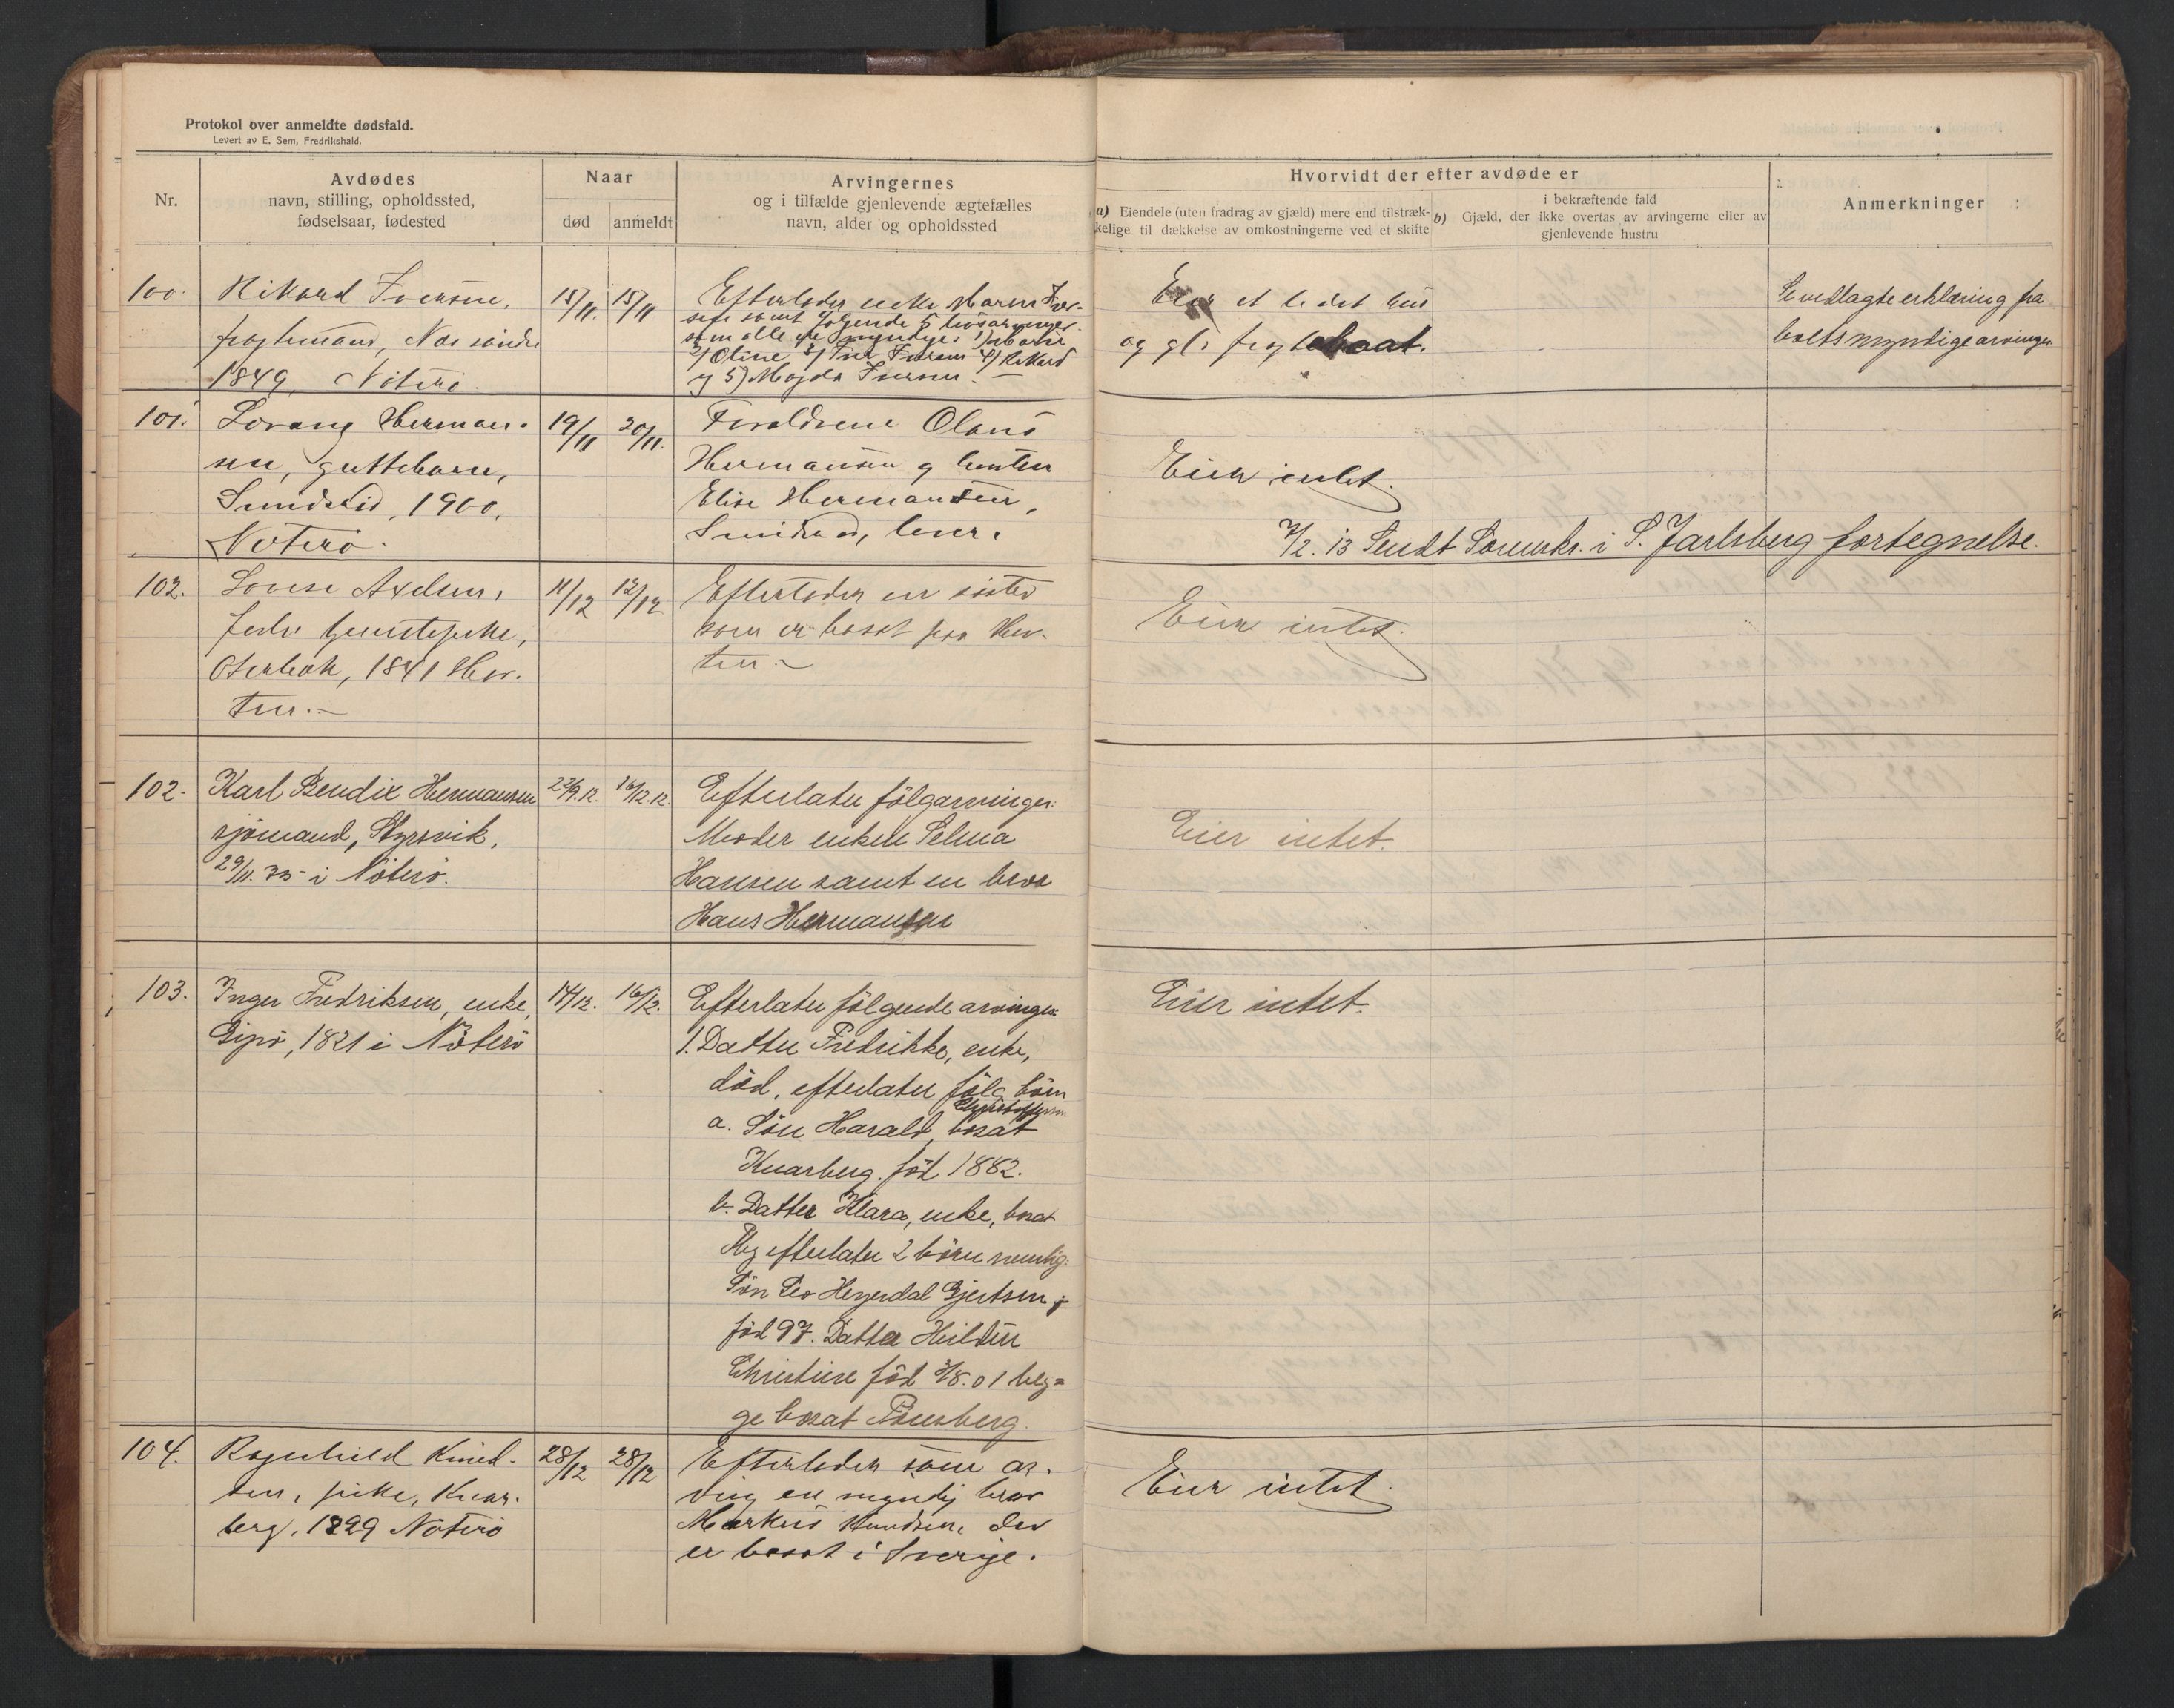 Protokol over anmeldte dødsfald.
Levert av E. Sem, Fredrikshald.
Nr.
Avdødes
navn, stilling, opholdssted,
fødselsaar, fødested
Naar
død
anmeldt
Arvingernes
og i tilfælde gjenlevende ægtefælles
navn, alder og opholdssted
Hvorvidt der efter avdøde er
a) Eiendele (uten fradrag av gjæld) mere end tilstræk-
kelige til dækkelse av omkostningerne ved et skifte
i bekræftende fald
b) Gjæld, der ikke overtas av arvingerne eller av
gjenlevende hustru
Anmerkninger
100.
Rikard Iversen,
fragtemand,
1849, Nøterø.
15/11.
15/11
Efterlader enke Maren Iver-
sen samt følgende 5 livsarvinger
som alle er myndige: 1) Marie
2) Oline 3) Iver Iversen 4) Rikard
og 5) Magda Iversen. —
Eier et hus
og gl. fragtebaat.
Se vedlagte erklæring fra
boets myndige arvinger
101.
Herman-
sen, guttebarn,
1900,
Nøterø.
19/11
20/11.
Forældrene Olaus
Hermansen og hustru
Elise Hermansen,
Eier intet.
7/2. 13 Sendt Sorenskr. i S. Jarlsberg fortegnelse.
102.
Lovise Axelsen,
tjenestepike,
Oterbæk, 1841 Hor-
ten. —
11/12
12/12
Efterlader en søster
som er bosat paa Hor-
ten. —
Eier intet.
102.
Karl Bendix Hermansen
sjømand, Styrsvik,
29/11. 75 i Nøterø.
22/9.12.
16/12.12.
Efterlater følg arvinger:
Moder enken Selma
Hansen samt en bror
Hans Hermansen
Eier intet.
103.
Inger Fredriksen, enke,
Gipø, 1821 i Nøterø
14/12.
16/12.
Efterlater følgende arvinger:
1. Datter Fredrikke, enke,
død, efterlater følg børn
Christoffersen
a. Søn Harald, bosat
Knarberg, født 1882.
b. Datter Klara, enke, bosat
Tbg efterlater 2 børn nemlig:
Søn Leo Heyerdal Gjertsen,
født 97. Datter
Christine født /8. 01 beg=
ge bosat Tønsberg.
Eier intet.
104.
Ragnhild Knud-
sen, pike, Knar-
berg, 1829 Nøterø
28/12
28/12
Efterlader som ar-
ving en myndig bror
Markus Knudsen, der
er bosat i Sverige.
Eier intet.